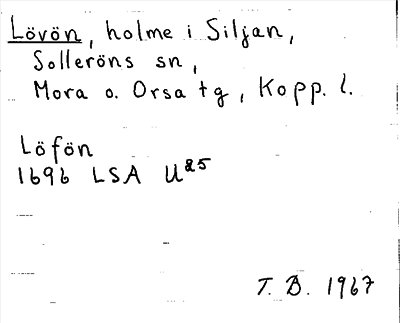 Lövön, holme i Siljan,
Solleröns sn,
Mora o. Orsa tg, Kopp. l.
Löfön
1696 LSA U25
T. B. 1967